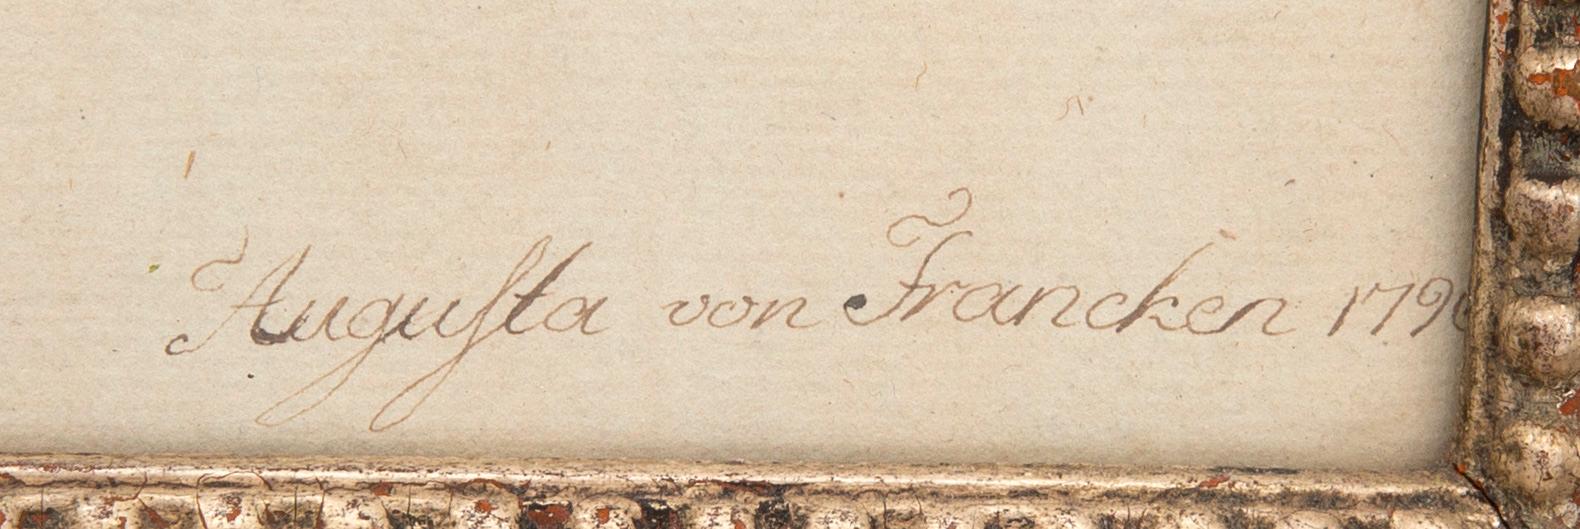 Auguſta von Francken 179